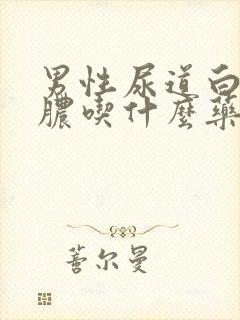 男性尿道白
膿喫什麼藥
蓍尔曼